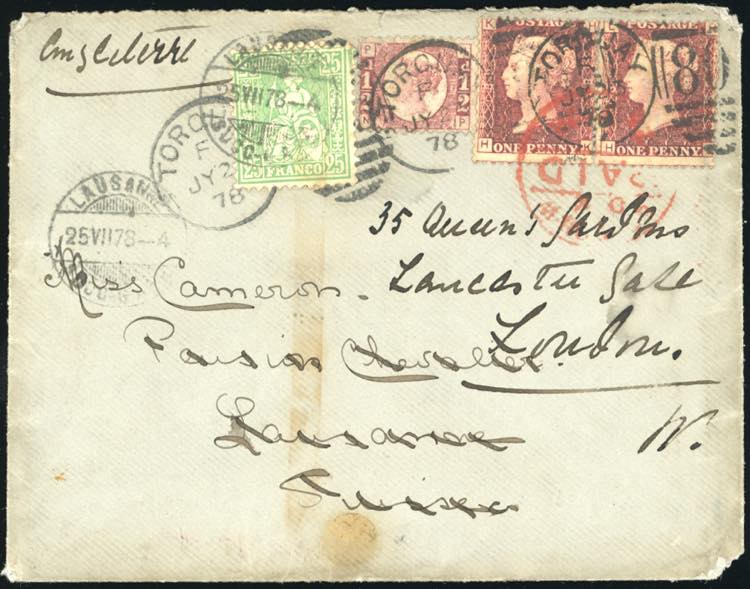 Angleterre
LAUSANNE
25 VII 78-4
25 25
25 FRANCO 25
TORQUAY
F
JY 2
78
P
1/2 1/2
P
TORQUAY
F
JY
78
K H POSTAGE
H ONE PENNY K
TORQUAY
F
JY 23
78
L POSTAGE
H ONE PENNY
8
PAID
LAUSANNE
25 VII 78-4
35 Queen's Gardens
Miss Cameron. Lancaster Gate
Pension Chevalier. London.
Lausanne W.
Suisse